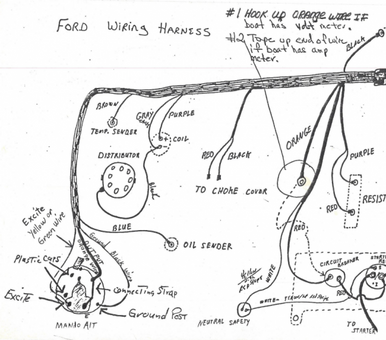 FORD WIRING HARNESS
#1 HOOK UP ORANGE WIRE IF
boat has volt meter.
#2 Tape up end of wire
if boat has amp
meter.
BLACK
BROWN
TEMP. SENDER
GRAY
PURPLE
COIL
DISTRIBUTOR
RED
BLACK
TO CHOKE COVER
ORANGE
PURPLE
RED
RESIST
BLUE
OIL SENDER
Excite
Yellow or
Green wire
OUTPUT
Ground
Black wire
Plastic Caps
Connecting Strap
Excite
Ground Post
MANDO ALT
RED
WHITE
Yellow
NEUTRAL SAFETY
WHITE
CIRCUIT
BREAKER
RED
START
TO
STARTER